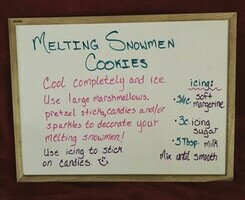 MELTING SNOWMEN
COOKIES
Cool completely and ice.
Use large marshmallows,
pretzel sticks, candies and/or
sparkles to decorate your
melting snowmen!
Use icing to stick
on candies.
icing:
soft
margerine
• 3c. icing
sugar
• 5 Tbsp. milk
Mix until smooth